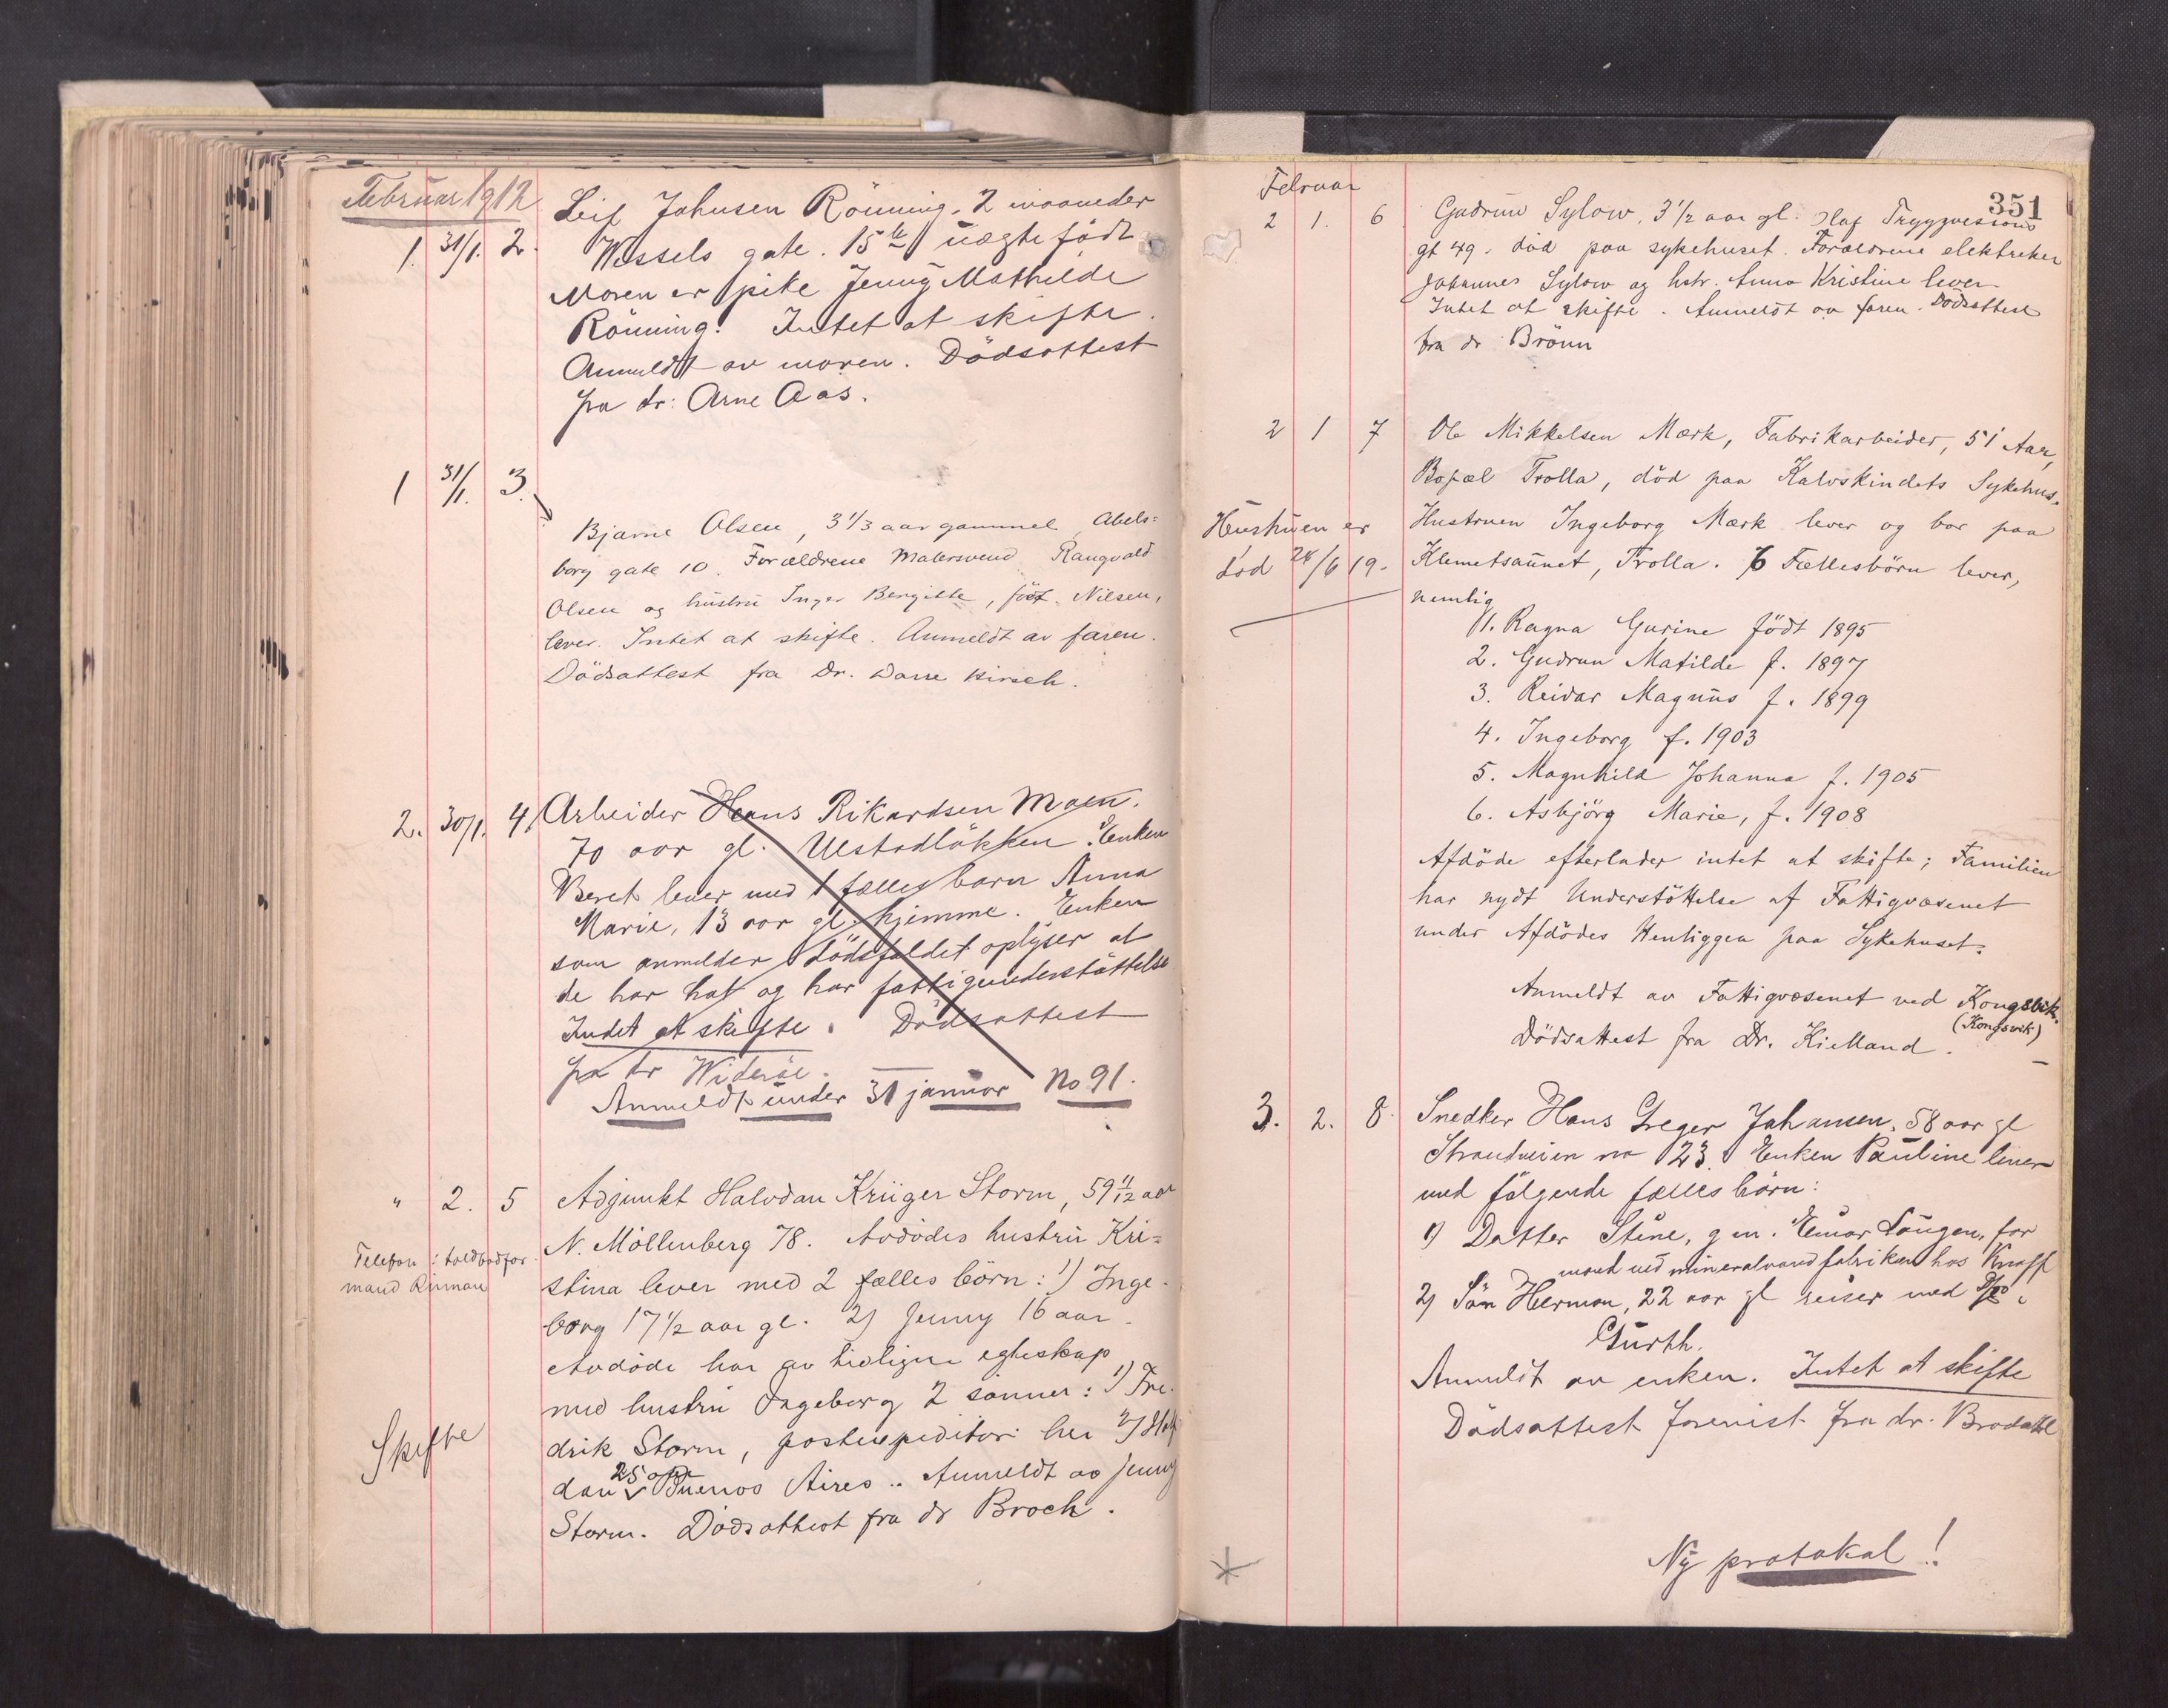 Februar 1912
1. 31/1. 2. Leif Johnsen Rönning. 2 maaneder
Wessels gate. 15 b uægte födt
Moren er pike Jenny Mathilde
Rönning. Intet at skifte.
Anmeldt av moren. Dödsattest
fra dr: Arne Aas.
1 31/1. 3.
Bjarne Olsen, 3 1/3 aar gammel, Abels=
borg gate 10. Forældrene Malersvend Rangvald
Olsen og hustru Inger Bergitte, född Nilsen,
lever. Intet at skifte. Anmeldt av faren.
Dödsattest fra Dr. Darre Hirsch.
2. 30/1. 4. Arbeider Hans Rikardsen Moen.
70 aar gl. Ulstadlökken. Enken
Beret lever med 1 fælles barn Anna
Marie, 13 aar gl. hjemme. Enken
som anmelder dödsfaldet oplyser at
de har hat og har fattigunderstöttelse
Intet at skifte. Dödsattest
fra dr Wideröe.
Anmeldt under 31 januar No 91.
" 2. 5 Adjunkt Halvdan Krüger Storm, 59 11/12 aar
Telefon: toldbodfor
mand
N. Möllenberg 78. Avdödes hustru Kri=
stina lever med 2 fælles börn: 1) Inge-
borg 17 1/2 aar gl. 2) Jenny 16 aar.
Avdöde har av tidligere egteskap
med hustru Ingeborg 2 sönner: 1) Fre-
Skifte
drik Storm, postexpeditör her 2) Halv
25 aar
dan v Buenos Aires.. Anmeldt av Jenny
Storm. Dödsattest fra dr Broch.
Februar
351
2 1. 6 Gudrun Sylow, 3 1/2 aar gl. Olaf Trygvesions
gt 49. död paa sykehuset. Forældrene elektriker
Johannes Sylow og hstr. Anna Kristine lever
Intet at skifte. Anmeldt av faren. Dödsattest
fra dr Brönn
2 1 7 Ole Mikkelsen Mærk, Fabrikarbeider, 51 Aar,
Bopæl Trolla, död paa Kalvskindets Sykehus.
Hustruen er
Hustruen Ingeborg Mærk lever og bor paa
död 24/6 19.
Klemetsaunet, Trolla. 6 Fællesbörn lever,
nemlig
1. Ragna Gurine födt 1895
2. Gudrun Matilde f. 1897
3. Reidar Magnus f. 1899
4. Ingeborg f. 1903
5. Magnhild Johanna f. 1905
6. Asbjörg Marie, f. 1908
Afdöde efterlader intet at skifte; Familien
har nydt Understöttelse af Fattigvæsenet
under Afdödes Henliggen paa Sykehuset.
Anmeldt av Fattigvæsenet ved Kongsvik.
(Kongsvik)
Dödsattest fra Dr. Kielland.
3. 2. 8. Snedker Hans Greger Johansen, 58 aar gl
Strandveien no 123. Enken Pauline lever
med fölgende fælles börn:
1) Datter Stine, g m. Einar Laugen, for
mand ved mineralvandfabriken hos Knoff
2) Sön Herman, 22 aar gl reiser med
Gurth.
Anmeldt av enken. Intet at skifte
Dödsattest forevist fra dr. Brodahl
Ny protokol!